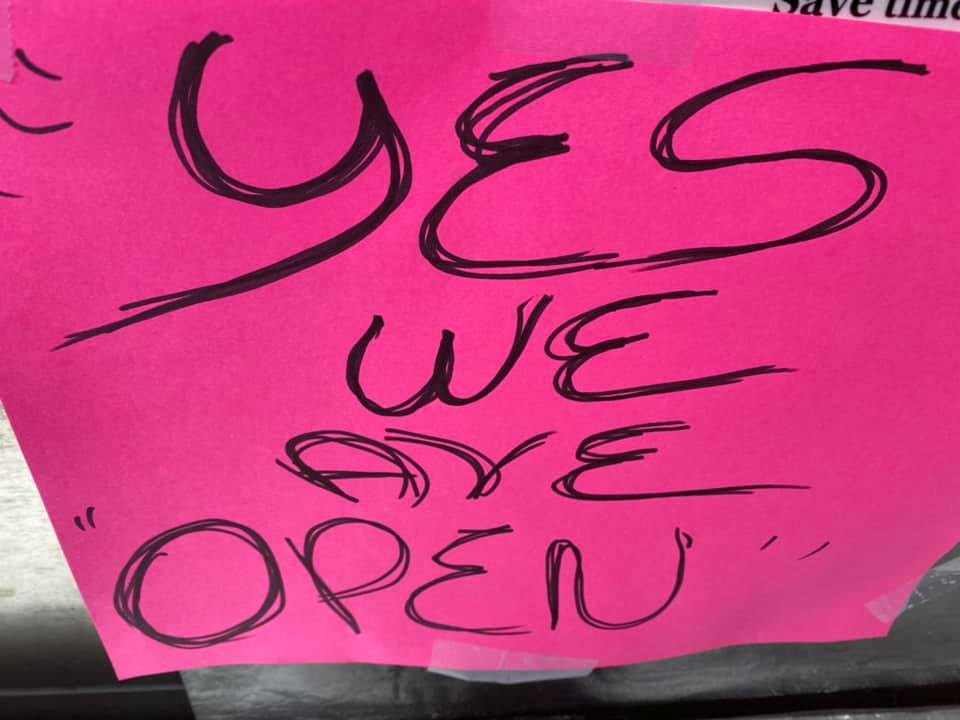 Save time
YES
WE
ARE
"OPEN"